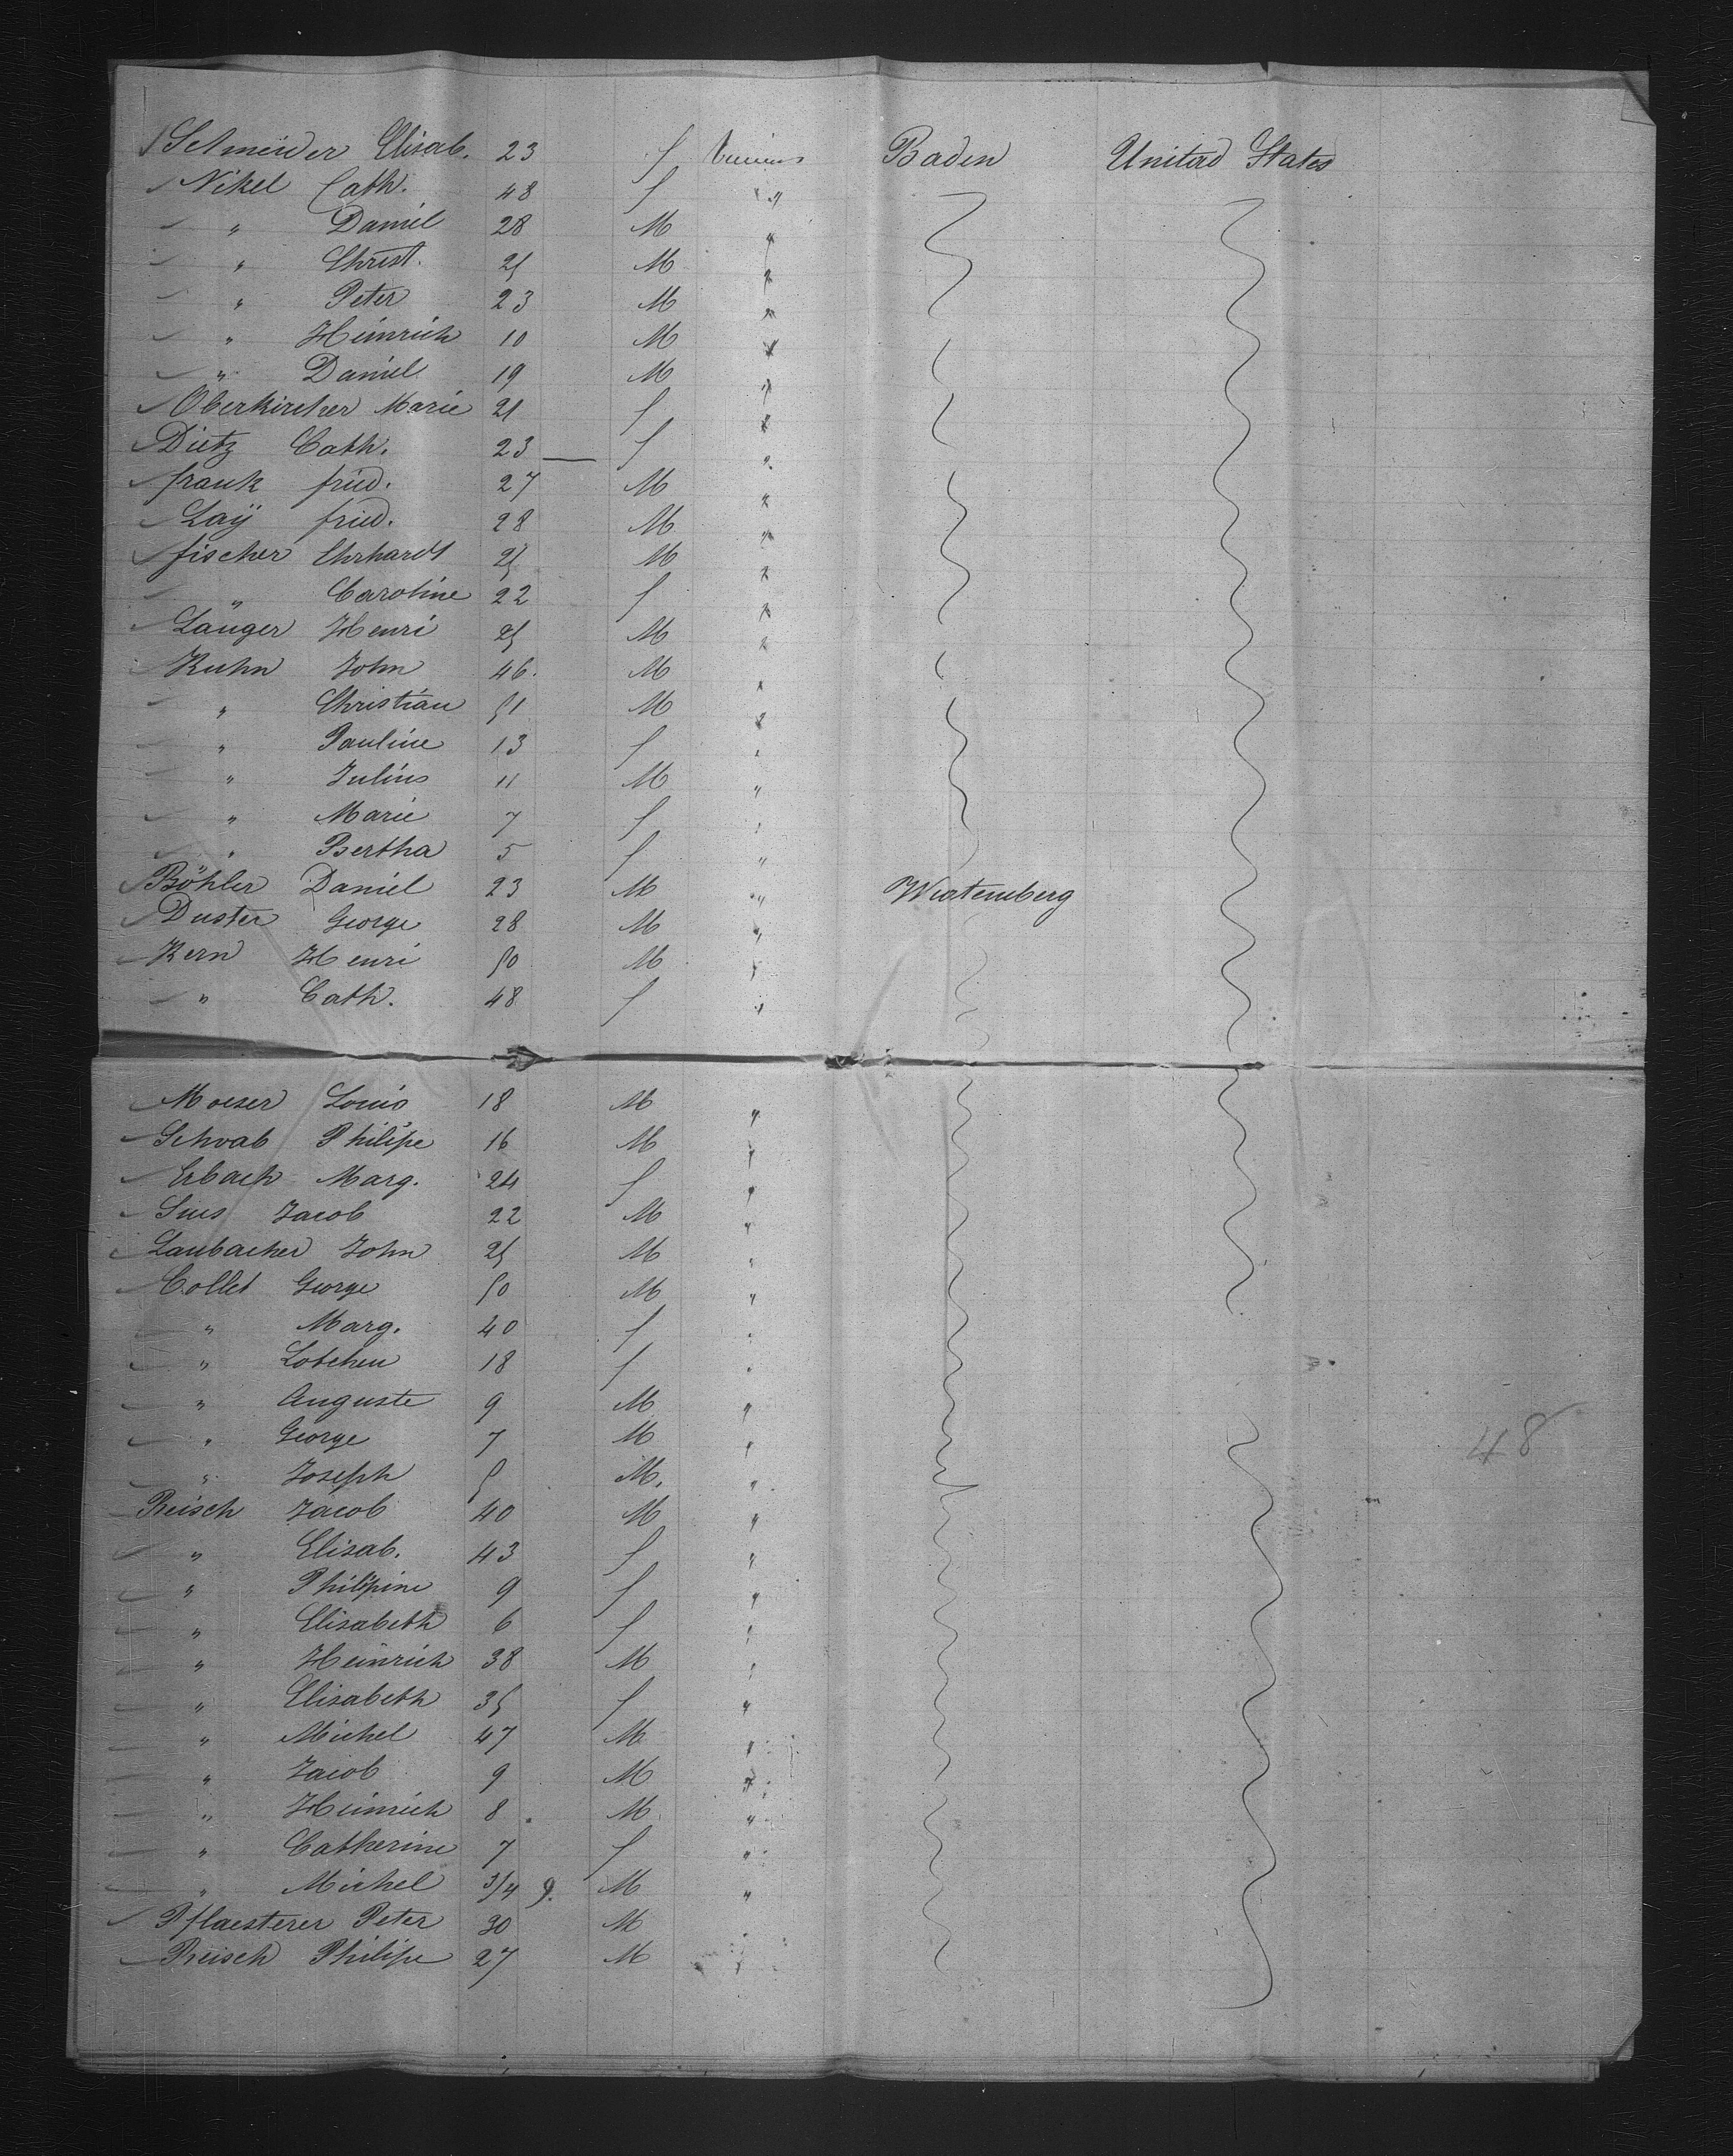 Schneider Elisab. 23 f Baden United States
Nikel Cath. 48 f "
" Daniel 28 M "
" Christ. 25 M "
" Peter 23 M "
" Heinrich 10 M "
" Daniel 19 M "
Oberkircher Marie 21 f "
Dietz Cath. 23 — f "
frank fried. 27 M "
Laÿ fried. 28 M "
fischer Ehrhardt 25 M "
" Caroline 22 f "
Langer Henri 25 M "
Kuhn John 46. M "
" Christian 51 M "
" Pauline 13 f "
" Julius 11 M "
" Marie 7 f "
" Bertha 5 f "
Böhler Daniel 23 M " Wurtemberg
Duster George 28 M "
Kern Henri 50 M "
" Cath. 48 f "
Moeser Louis 18 M "
Schwab Philipe 16 M "
Erbach Marg. 24 f "
Jacob 22 M "
Laubacher John 25 M "
Collet George 50 M "
" Marg. 40 f "
" Lotchen 18 f "
" Auguste 9 M "
" George 7 M "
" Joseph 5 M. "
Reisch Jacob 40 M "
" Elisab. 43 f "
" Philipine 9 f "
" Elisabeth 6 f "
" Heinrich 38 M "
" Elisabeth 35 f "
" Michel 47 M "
" Jacob 9 M "
" Heinrich 8 M "
" Catherine 7 f "
" Michel 3/4 9. M "
Pflaesterer Peter 30 M
Reisch Philipe 27 M "
48